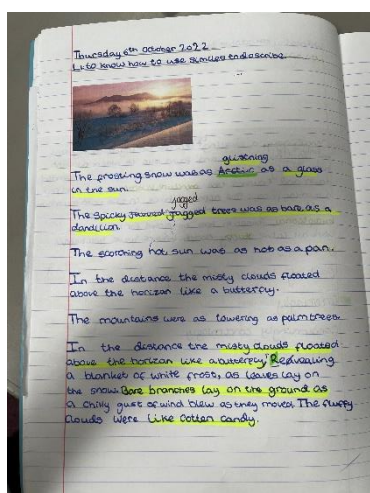 Thursday 6th October 2022
L.I. to know how to use similes to describe.
glistning
The frosting snow was as Arctic as a glass
in the sun.
jagged
The spicky jagged trees was as bare as a
dandilion.
The scorching hot sun was as hot as a pan.
In the distance the misty clouds floated
above the horizan like a butterfly.
The mountains were as towering as palm trees.
In the distance the misty clouds floated
above the horizan like a butterfly, Revealing
a blanket of white frost, as leaves lay on
the snow. Bare branches lay on the ground as
a chilly gust of wind blew as they moved. The fluffy
clouds were like cotten candy.